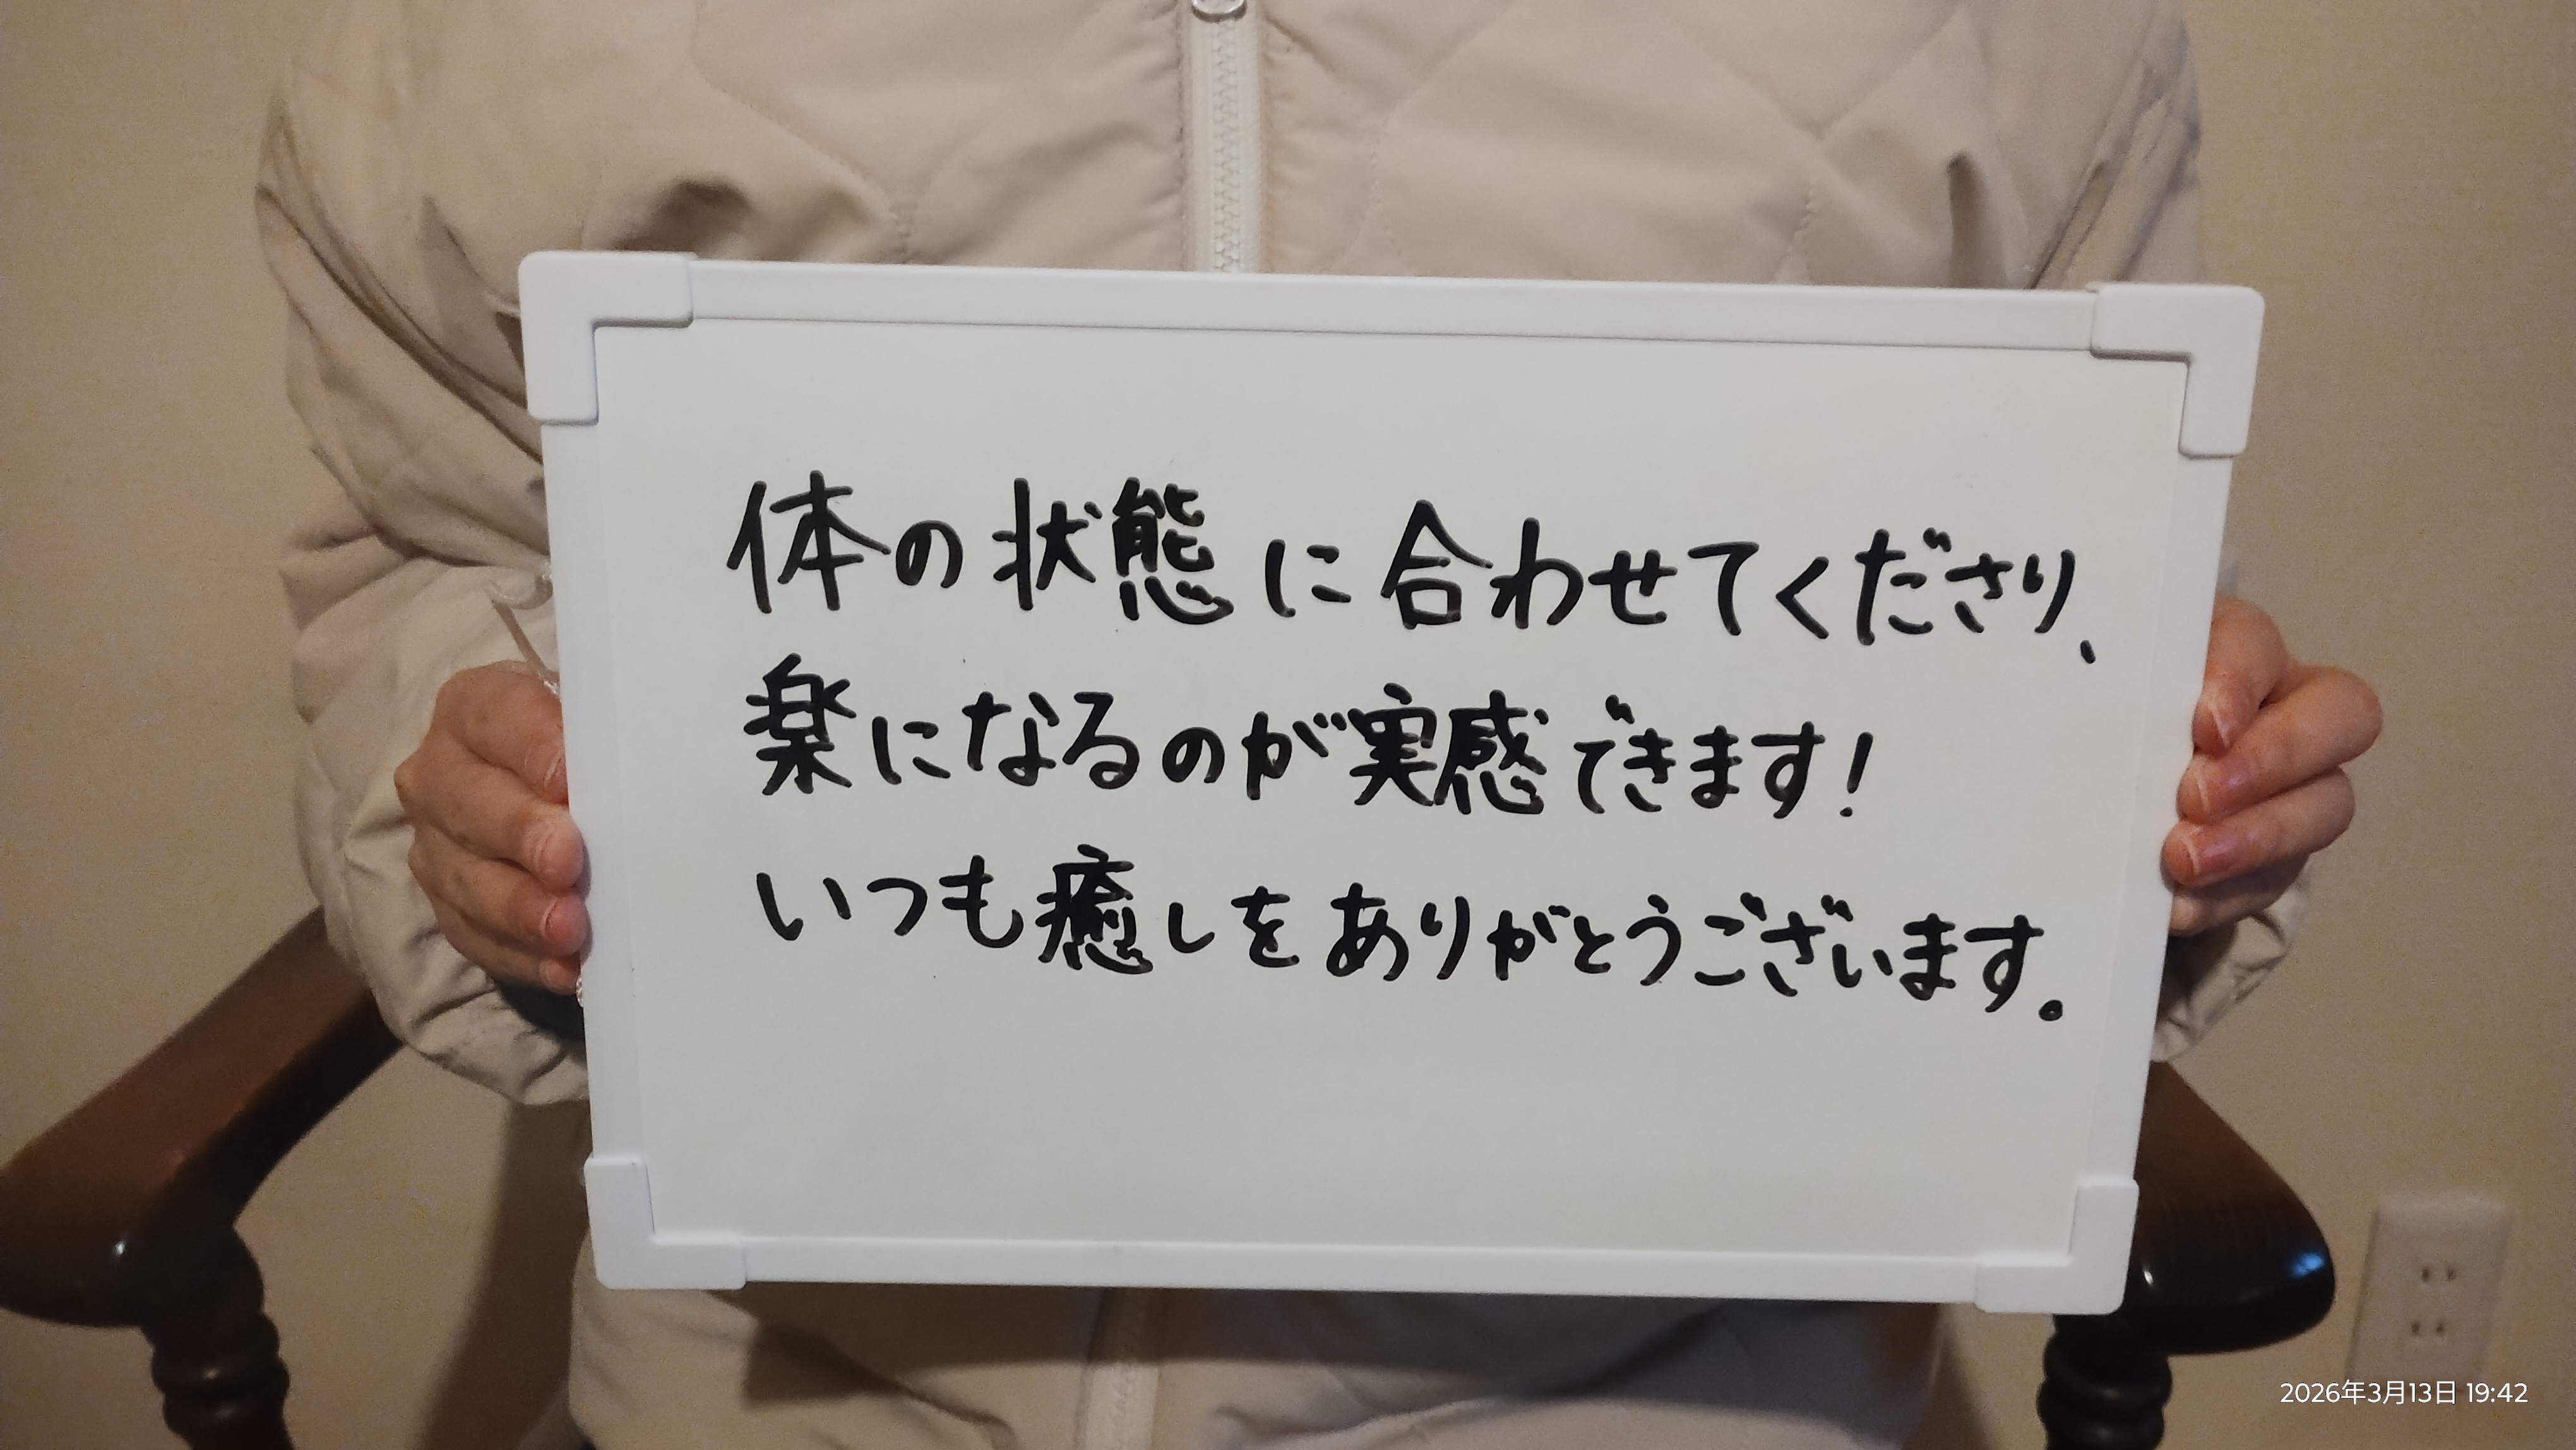 体の状態に合わせてくださり、
楽になるのが実感できます!
いつも癒しをありがとうございます。
2026年3月13日 19:42